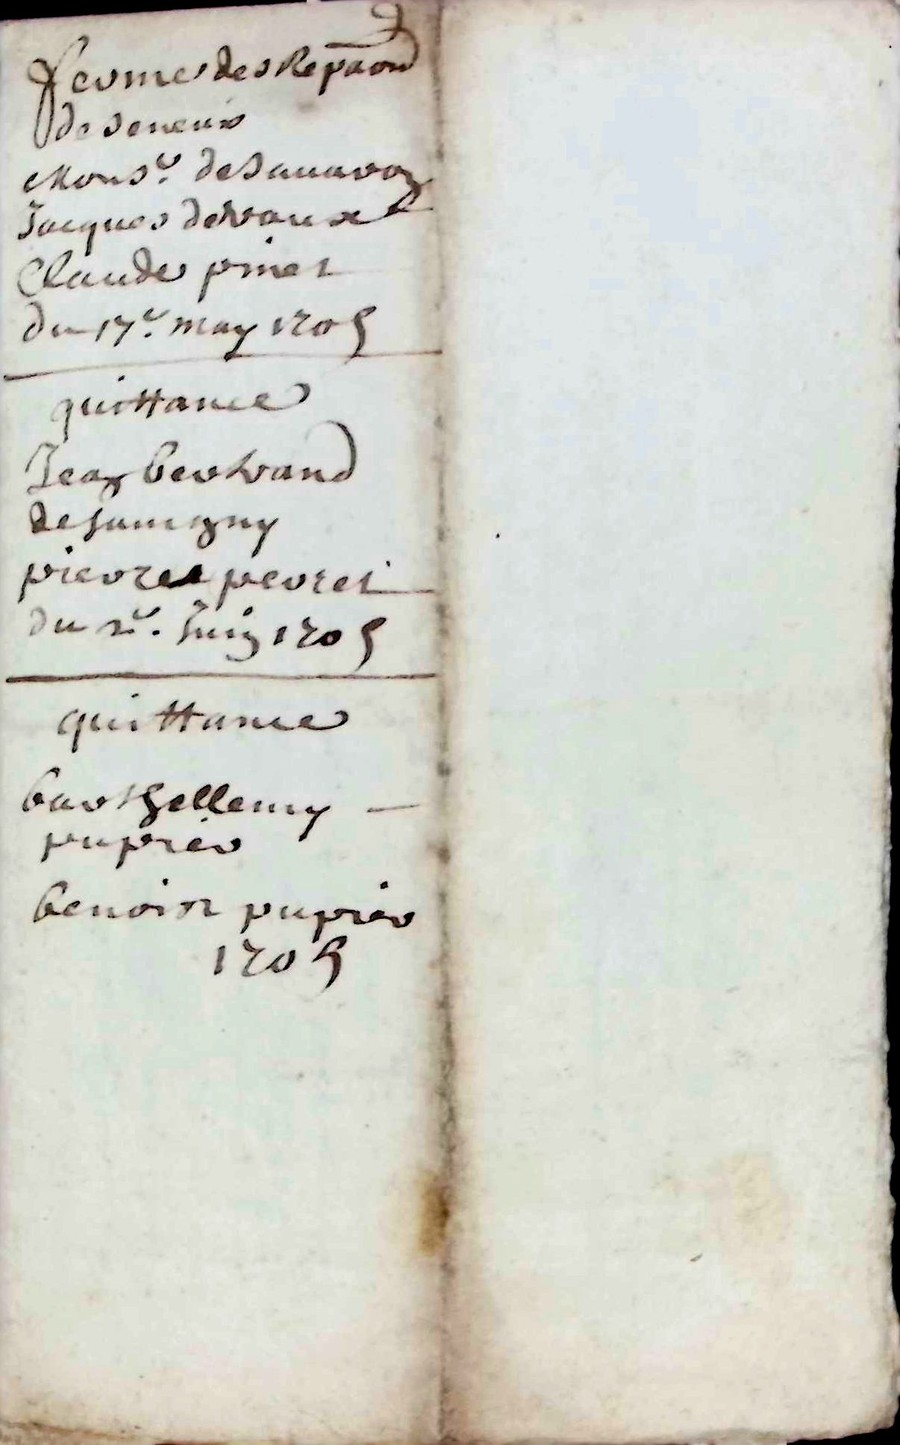 ferme des
de
Monsr. de Sauaron
Jacques devaux
Claude pinet
du 17e. may 1705
quittance
Jean bertrand
de sauuigny
pierre perret
du 2e. Juin 1705
quittance
barthellemy
pupier
benoist pupier
1705